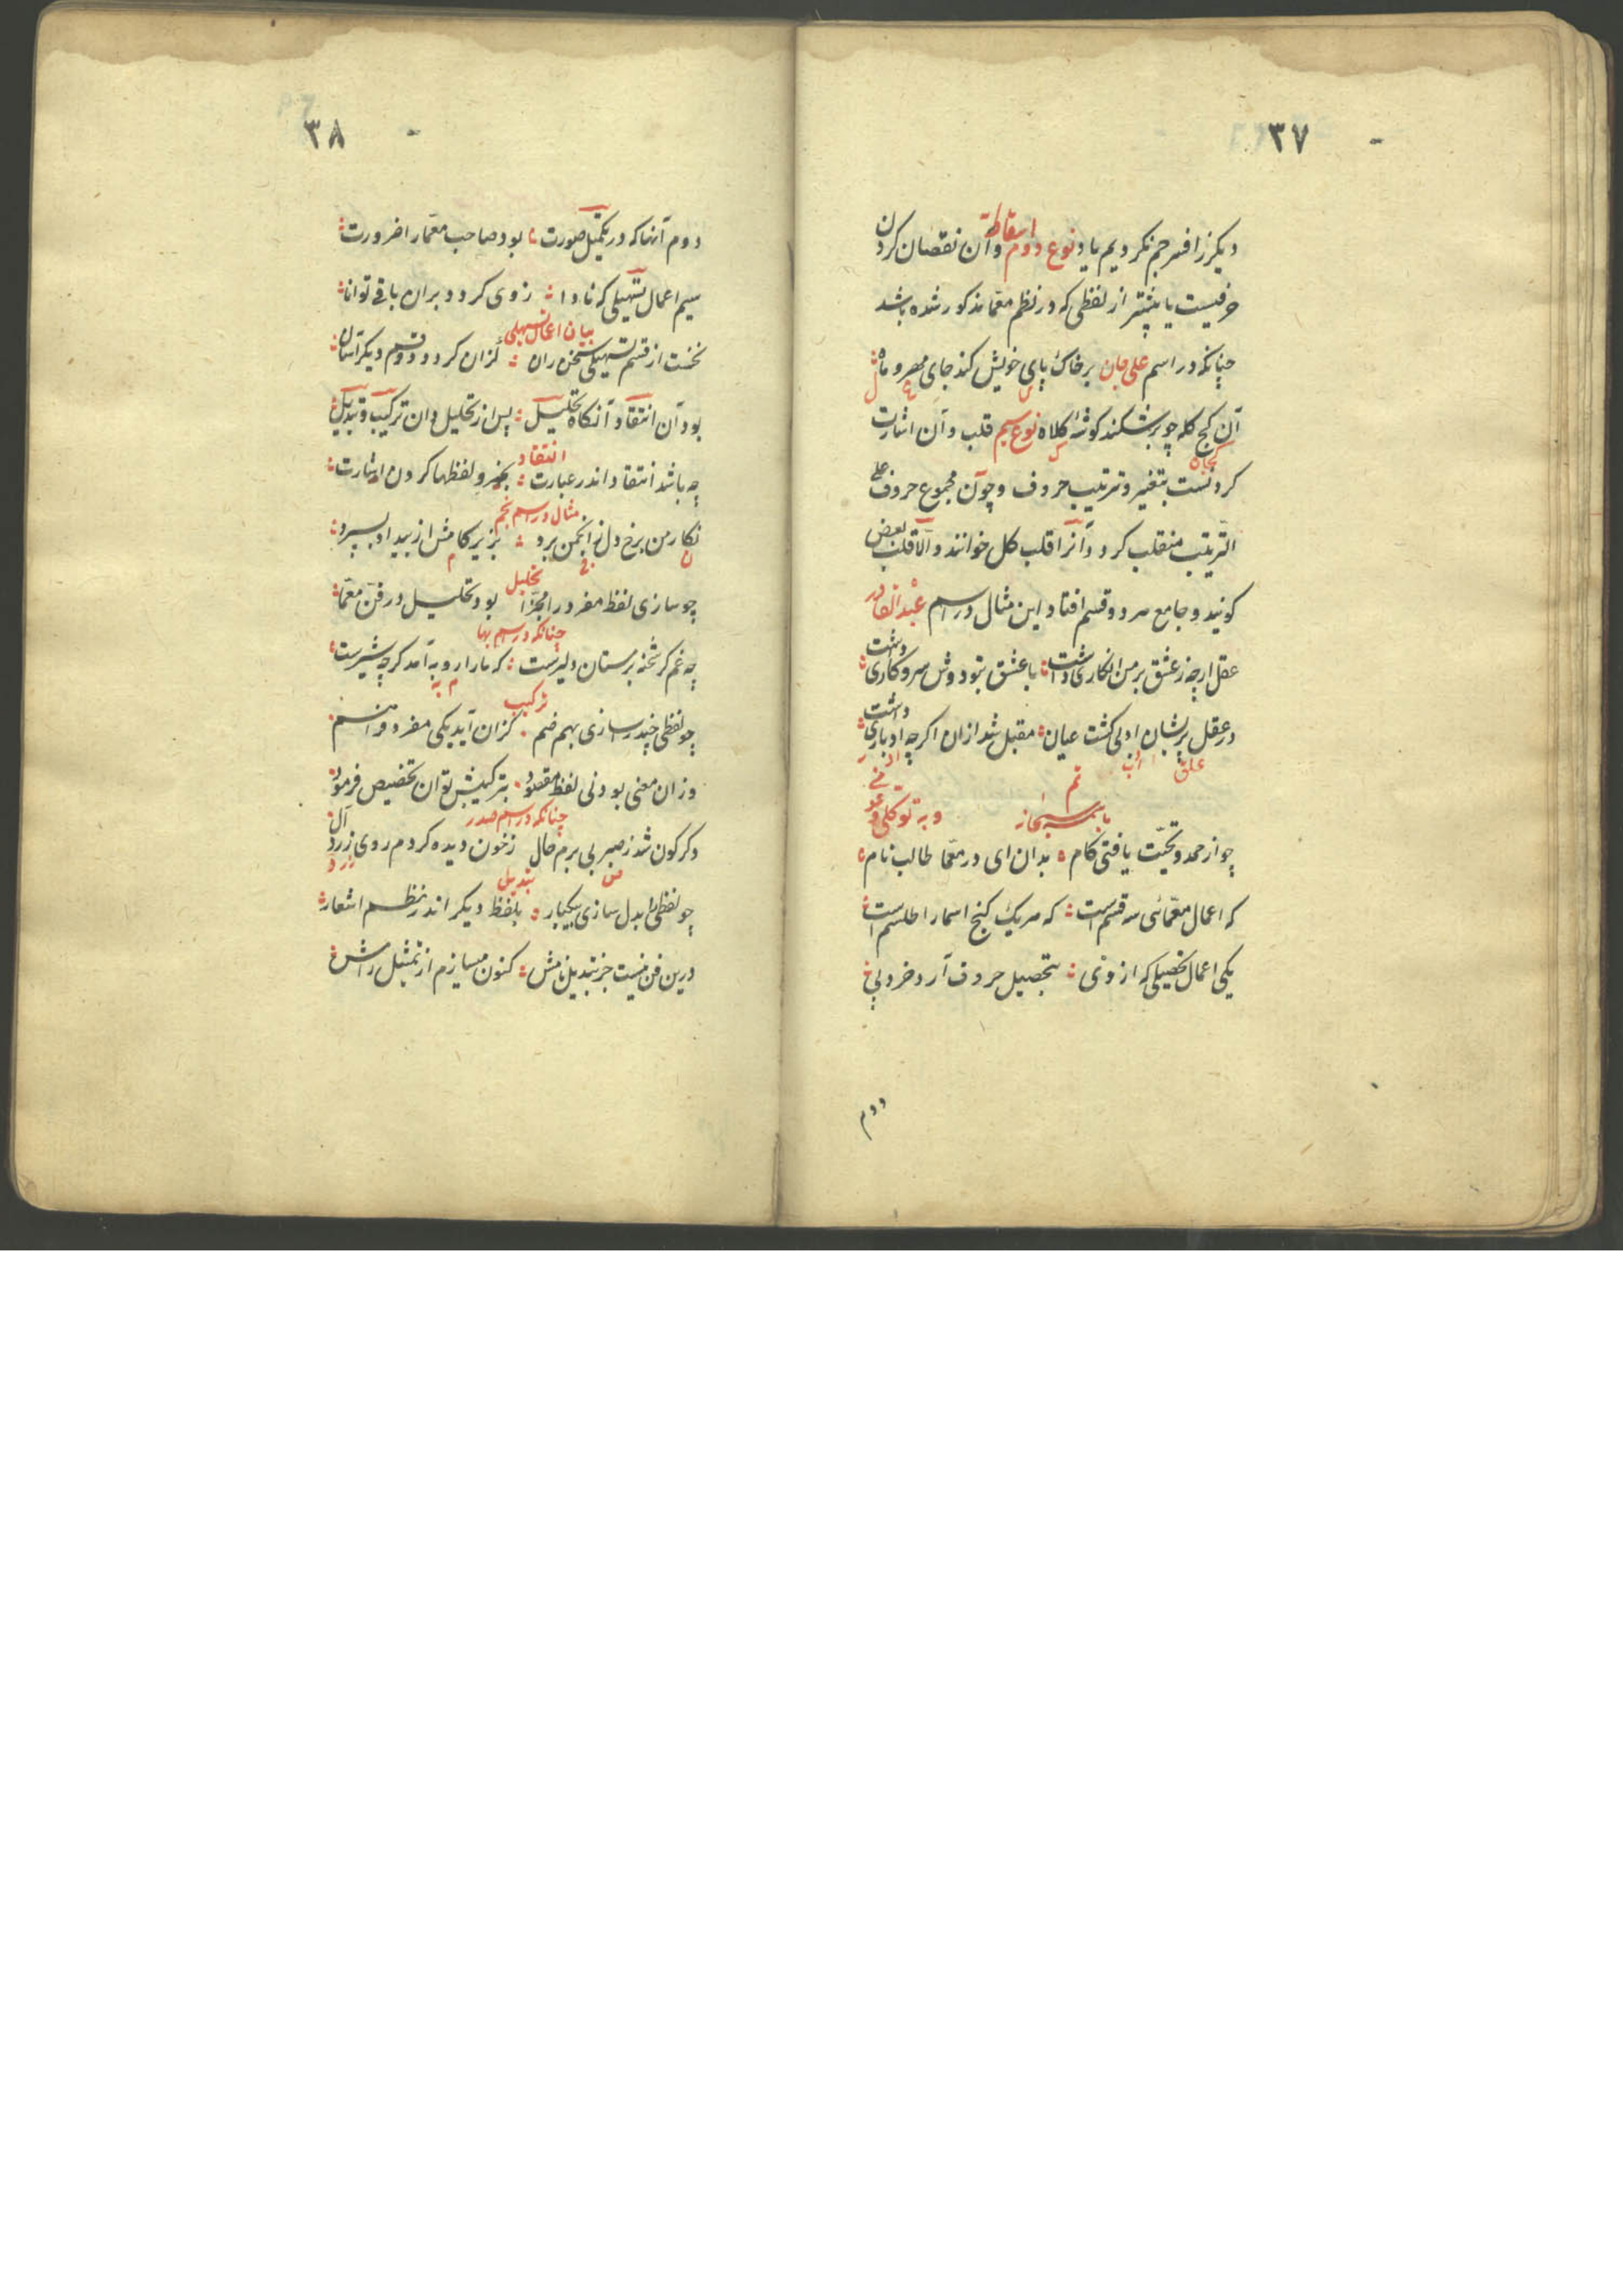 ۳۷
دیکر ز افسر جم نکردیم یاد نوع دوم اسقاط و آن نقصان کردن
حرفیست یا بیشتر از لفظی که در نظم معما مذکور شده باشد
چنانکه در اسم علی جان بر خاک پای خویش کند جای مهر و ماه
آن کج کله چو بر شکند کوشهٔ کلاه نوع سیم قلب و آن اشارت
کردنست بتغییر ترتیب حروف و چون مجموع حروف علی
الترتیب منقلب کردد آنرا قلب کل خوانند و الّا قلب بعض
کویند و جامع هر دو قسم افتاد این مثال در اسم عبد القادر
عقل ارچه ز عشق بر من انکاری داشت با عشق تو دوش سر و کاری داشت
در عقل پریشان ادبی کشت عیان مقبل شد ازان اکرچه ادباری داشت
علق
تم
باسمه سبحانه
و به توکلی
چو از حمد و تحیّت یافتی کام بدان ای در معما طالب نام
که اعمال معمائی سه قسم است که هر یک کنج اسما را طلسم است
یکی اعمال تحصیلی که از وی بتحصیل حروف آرد خرد پی
دوم
۳۸
دوم آنها که در تکمیل صورت بود صاحب معما را ضرورت
سیم اعمال تسهیلی که نادا ز وی کردد بران باقی توانا
بیان اعمال تسهیلی
نخست از قسم تسهیلی سخن ران کزان کردد دو قسم دیکر آسان
بود آن انتقاد آنکاه تحلیل پس از تحلیل دان ترکیب و تبدیل
انتقاد
چه باشد انتقاد اندر عبارت بجزو لفظها کردن اشارت
مثال در اسم نجم
نکار من برخ دل ز انجمن برد بزیر کامش از بیداد بسپرد
تحلیل
چو سازی لفظ مفرد را مجزّا بود تحلیل در فن معمّا
چنانکه در اسم بها
چه غم کر شحنه بر مستان دلیرست که ما را رو به آمد کرچه شیرست
ترکیب
چو لفظی چند را سازی بهم ضم کزان آید یکی مفرد فراهم
وزان معنی بود نی لفظ مقصود بترکیبش توان تخصیص فرمود
چنانکه در اسم صدر
دکرکون شد ز صبر بی برم حال ز خون دیده کردم روی زرد آل
تبدیل
چو لفظی را بدل سازی بیکبار بلفظ دیکر اندر نظم اشعار
درین فن نیست جز تبدیل نامش کنون میسازم از تمثیل رامش